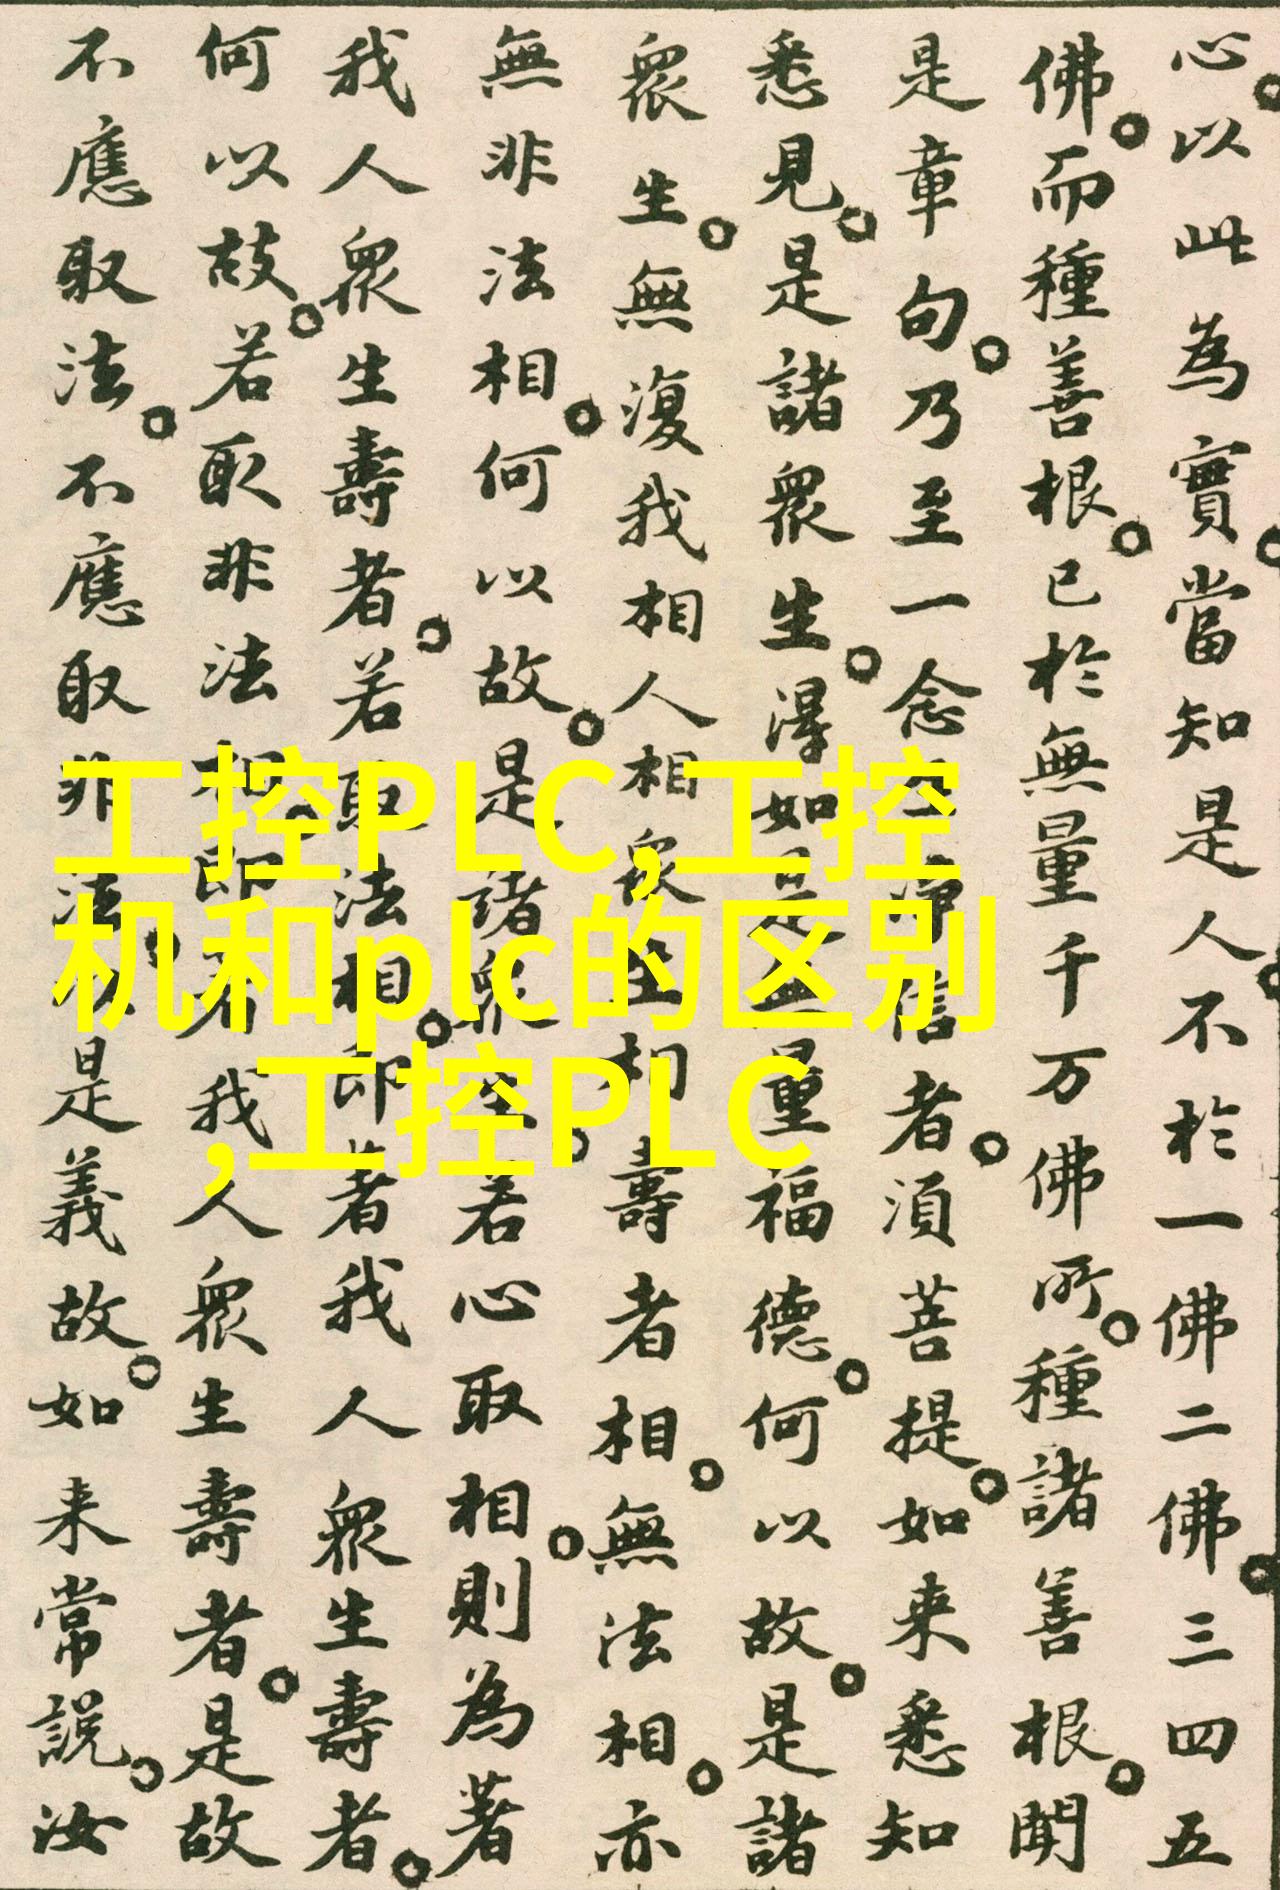 心。以此為實。當知是人。不於一佛二佛。三四五
佛。而種善根。已於無量千万佛所。種諸善根。聞
是章句。乃至一念生淨信者。須菩提。如来悉知
悉見。是諸衆生。得如是無量福德。何以故。是諸
衆生。無復我相人相衆生相壽者相。無法相。亦
無非法相。何以故。是諸衆生。若心取相。則為著
我人衆生壽者。若取法相。即著我人衆生壽者。
何以故。若取非法相。即著我人衆生壽者。是故
不應取法。不應取非法。以是義故。如来常説。汝
工控PLC,工控
机和plc的区别
,工控PLC